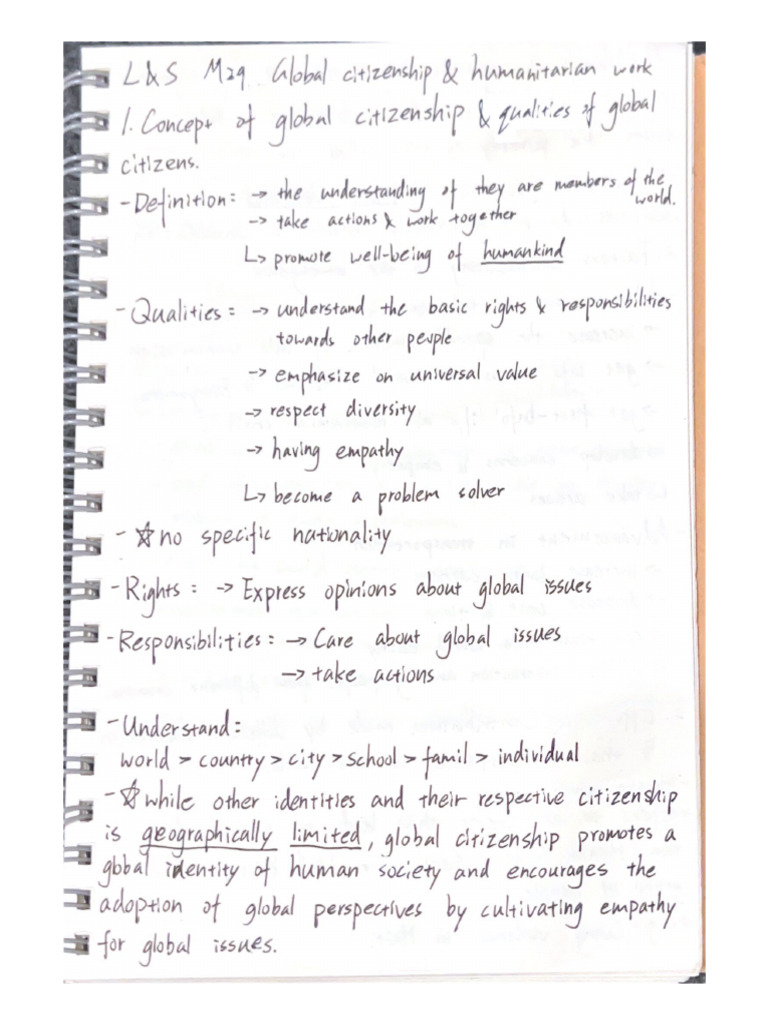 L&S M29 Global citizenship & humanitarian work
1. Concept of global citizenship & qualities of global
citizens.
- Definition: → the understanding of they are members of the world.
→ take actions & work together
↳ promote well-being of humankind
- Qualities: → understand the basic rights & responsibilities
towards other people
→ emphasize on universal value
→ respect diversity
→ having empathy
↳ become a problem solver
- ☆ no specific nationality
- Rights: → Express opinions about global issues
- Responsibilities: → Care about global issues
→ take actions
- Understand:
world > country > city > school > famil > individual
- ☆ while other identities and their respective citizenship
is geographically limited, global citizenship promotes a
global identity of human society and encourages the
adoption of global perspectives by cultivating empathy
for global issues.